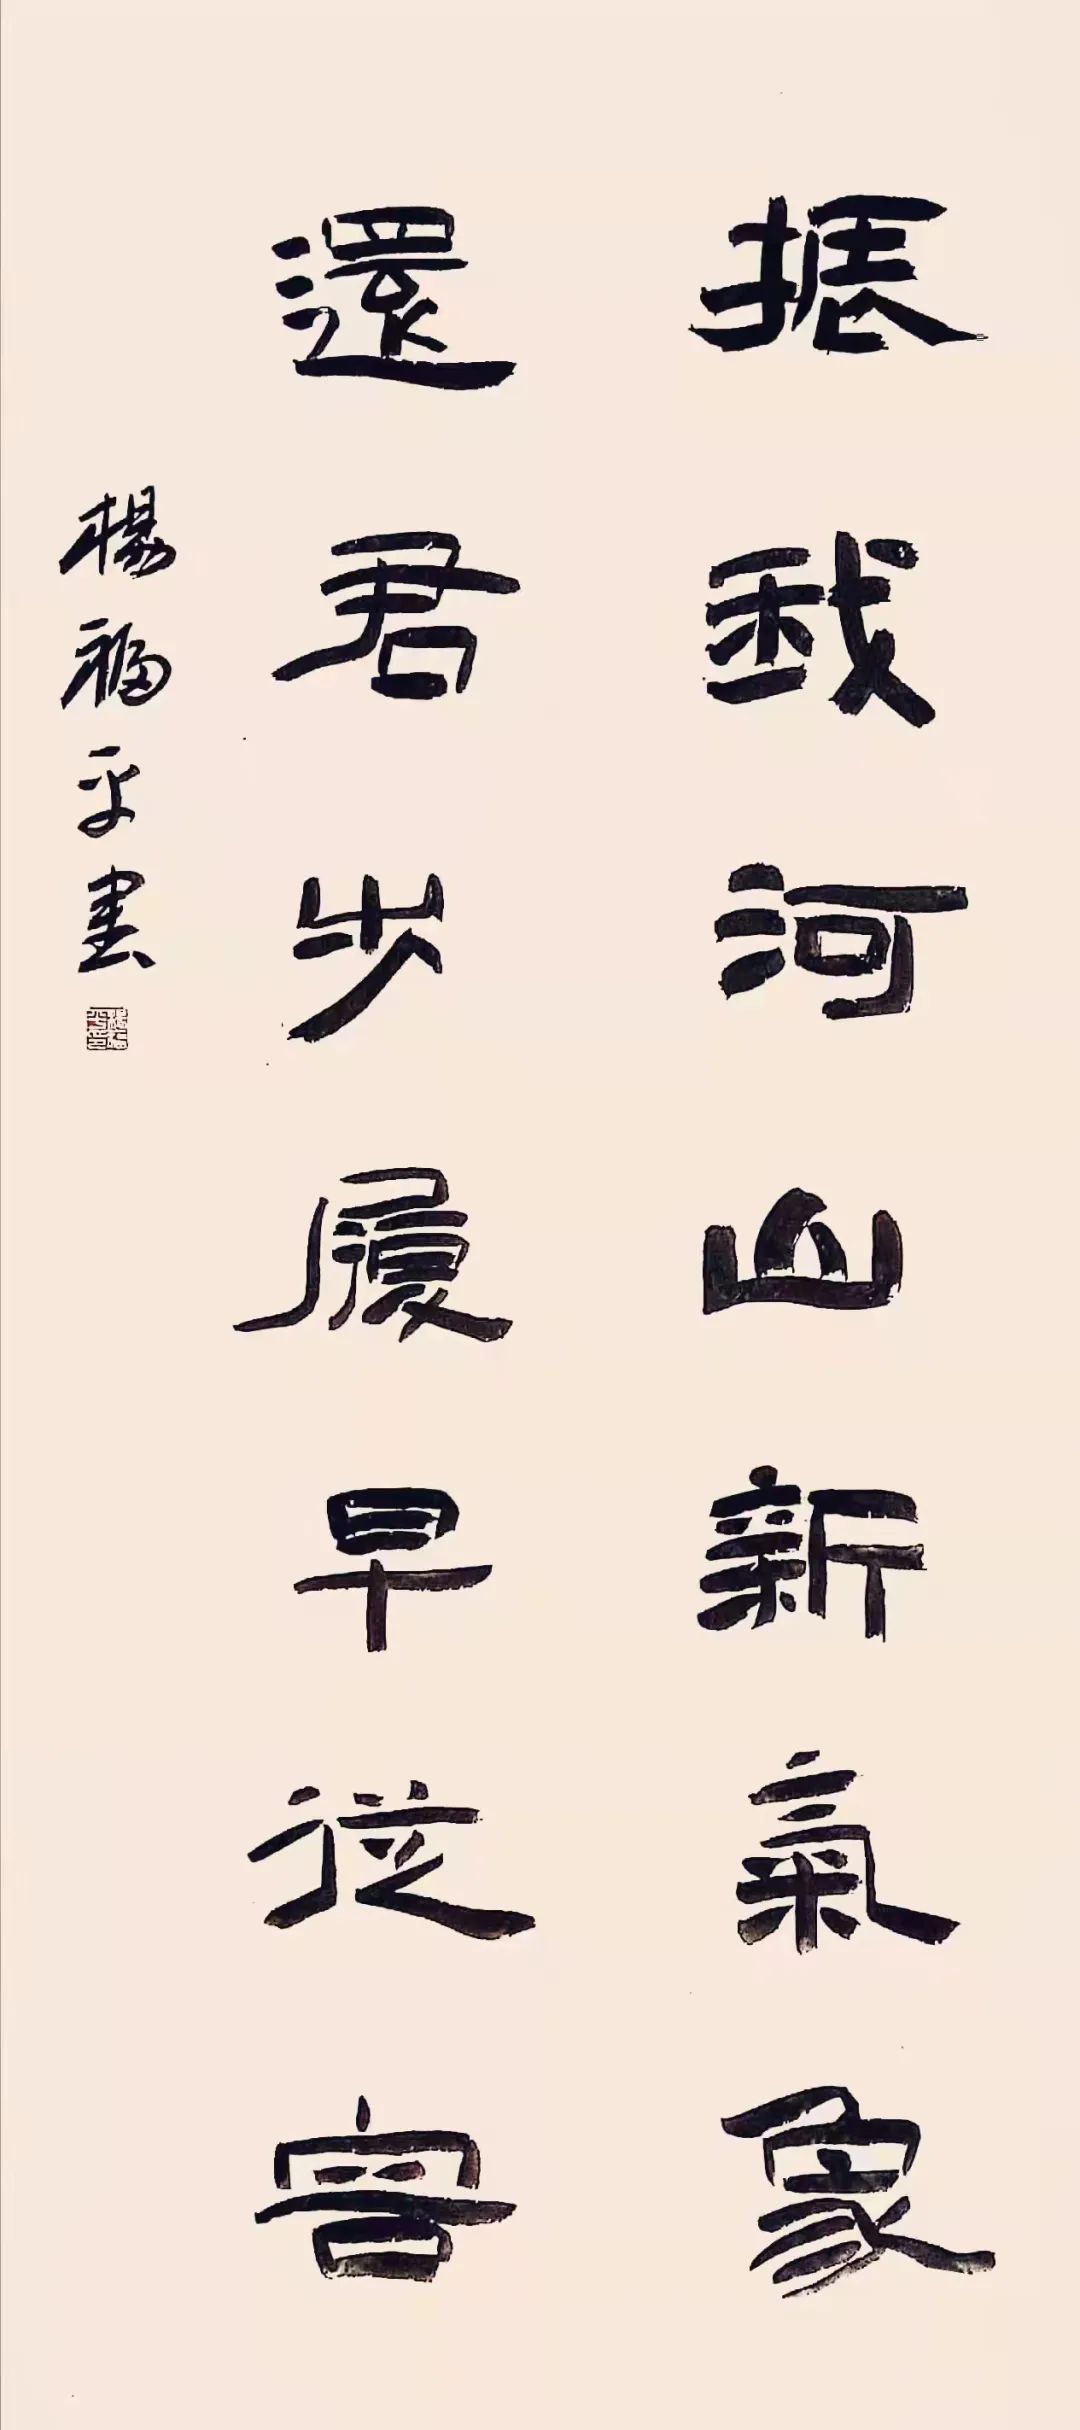 振我河山新氣象
還君步履早從容
楊福平書